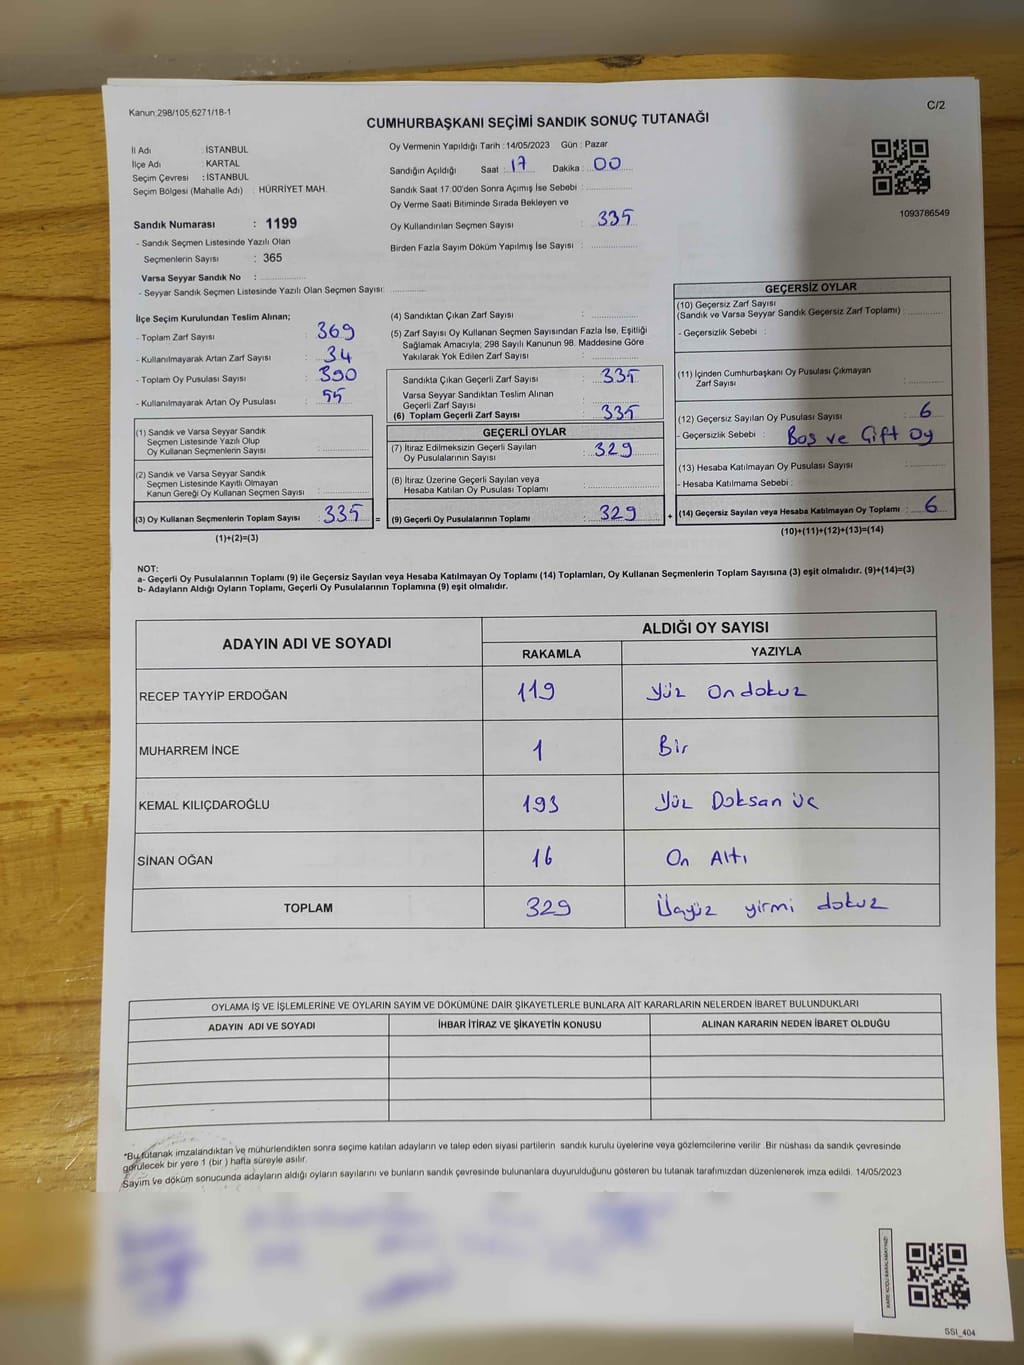 Kanun:298/105;6271/18-1
C/2
CUMHURBAŞKANI SEÇİMİ SANDIK SONUÇ TUTANAĞI
İl Adı : İSTANBUL
İlçe Adı : KARTAL
Seçim Çevresi : İSTANBUL
Seçim Bölgesi (Mahalle Adı) : HÜRRİYET MAH.
Sandık Numarası : 1199
- Sandık Seçmen Listesinde Yazılı Olan
Seçmenlerin Sayısı : 365
Varsa Seyyar Sandık No :
- Seyyar Sandık Seçmen Listesinde Yazılı Olan Seçmen Sayısı:
Oy Vermenin Yapıldığı Tarih : 14/05/2023 Gün : Pazar
Sandığın Açıldığı Saat : 17 Dakika : 00
Sandık Saat 17:00'den Sonra Açımış İse Sebebi :
Oy Verme Saati Bitiminde Sırada Bekleyen ve
Oy Kullandırılan Seçmen Sayısı : 335
Birden Fazla Sayım Döküm Yapılmış İse Sayısı :
1093786549
İlçe Seçim Kurulundan Teslim Alınan;
- Toplam Zarf Sayısı : 369
- Kullanılmayarak Artan Zarf Sayısı : 34
- Toplam Oy Pusulası Sayısı : 390
- Kullanılmayarak Artan Oy Pusulası : 55
(1) Sandık ve Varsa Seyyar Sandık
Seçmen Listesinde Yazılı Olup
Oy Kullanan Seçmenlerin Sayısı :
(2) Sandık ve Varsa Seyyar Sandık
Seçmen Listesinde Kayıtlı Olmayan
Kanun Gereği Oy Kullanan Seçmen Sayısı :
(3) Oy Kullanan Seçmenlerin Toplam Sayısı : 335 =
(1)+(2)=(3)
(4) Sandıktan Çıkan Zarf Sayısı :
(5) Zarf Sayısı Oy Kullanan Seçmen Sayısından Fazla İse, Eşitliği
Sağlamak Amacıyla; 298 Sayılı Kanunun 98. Maddesine Göre
Yakılarak Yok Edilen Zarf Sayısı :
Sandıkta Çıkan Geçerli Zarf Sayısı : 335
Varsa Seyyar Sandıktan Teslim Alınan
Geçerli Zarf Sayısı :
(6) Toplam Geçerli Zarf Sayısı : 335
GEÇERLİ OYLAR
(7) İtiraz Edilmeksizin Geçerli Sayılan
Oy Pusulalarının Sayısı : 329
(8) İtiraz Üzerine Geçerli Sayılan veya
Hesaba Katılan Oy Pusulası Toplamı :
(9) Geçerli Oy Pusulalarının Toplamı : 329 +
GEÇERSİZ OYLAR
(10) Geçersiz Zarf Sayısı
(Sandık ve Varsa Seyyar Sandık Geçersiz Zarf Toplamı) :
- Geçersizlik Sebebi :
(11) İçinden Cumhurbaşkanı Oy Pusulası Çıkmayan
Zarf Sayısı :
(12) Geçersiz Sayılan Oy Pusulası Sayısı : 6
- Geçersizlik Sebebi : Boş ve Çift Oy
(13) Hesaba Katılmayan Oy Pusulası Sayısı :
- Hesaba Katılmama Sebebi :
(14) Geçersiz Sayılan veya Hesaba Katılmayan Oy Toplamı : 6
(10)+(11)+(12)+(13)=(14)
NOT:
a- Geçerli Oy Pusulalarının Toplamı (9) ile Geçersiz Sayılan veya Hesaba Katılmayan Oy Toplamı (14) Toplamları, Oy Kullanan Seçmenlerin Toplam Sayısına (3) eşit olmalıdır. (9)+(14)=(3)
b- Adayların Aldığı Oyların Toplamı, Geçerli Oy Pusulalarının Toplamına (9) eşit olmalıdır.
ADAYIN ADI VE SOYADI
ALDIĞI OY SAYISI
RAKAMLA YAZIYLA
RECEP TAYYİP ERDOĞAN 119 Yüz On dokuz
MUHARREM İNCE 1 Bir
KEMAL KILIÇDAROĞLU 193 Yüz Doksan üç
SİNAN OĞAN 16 On Altı
TOPLAM 329 Üçyüz yirmi dokuz
OYLAMA İŞ VE İŞLEMLERİNE VE OYLARIN SAYIM VE DÖKÜMÜNE DAİR ŞİKAYETLERLE BUNLARA AİT KARARLARIN NELERDEN İBARET BULUNDUKLARI
ADAYIN ADI VE SOYADI İHBAR İTİRAZ VE ŞİKAYETİN KONUSU ALINAN KARARIN NEDEN İBARET OLDUĞU
*Bu tutanak imzalandıktan ve mühürlendikten sonra seçime katılan adayların ve talep eden siyasi partilerin sandık kurulu üyelerine veya gözlemcilerine verilir. Bir nüshası da sandık çevresinde
görülecek bir yere 1 (bir ) hafta süreyle asılır.
Sayım ve döküm sonucunda adayların aldığı oyların sayılarını ve bunların sandık çevresinde bulunanlara duyurulduğunu gösteren bu tutanak tarafımızdan düzenlenerek imza edildi. 14/05/2023
SSI_404